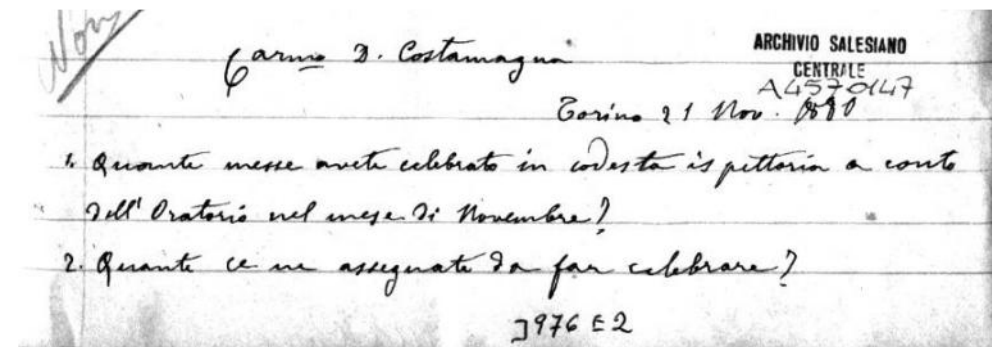 Nov
Carmo D. Costamagna
ARCHIVIO SALESIANO
CENTRALE
A4570147
Torino 21 Nov. 1880
1. Quante messe avete celebrato in codesta ispettoria a conto
dell' Oratorio nel mese di Novembre?
2. Quante ce ne assegnate da far celebrare?
3976 E2